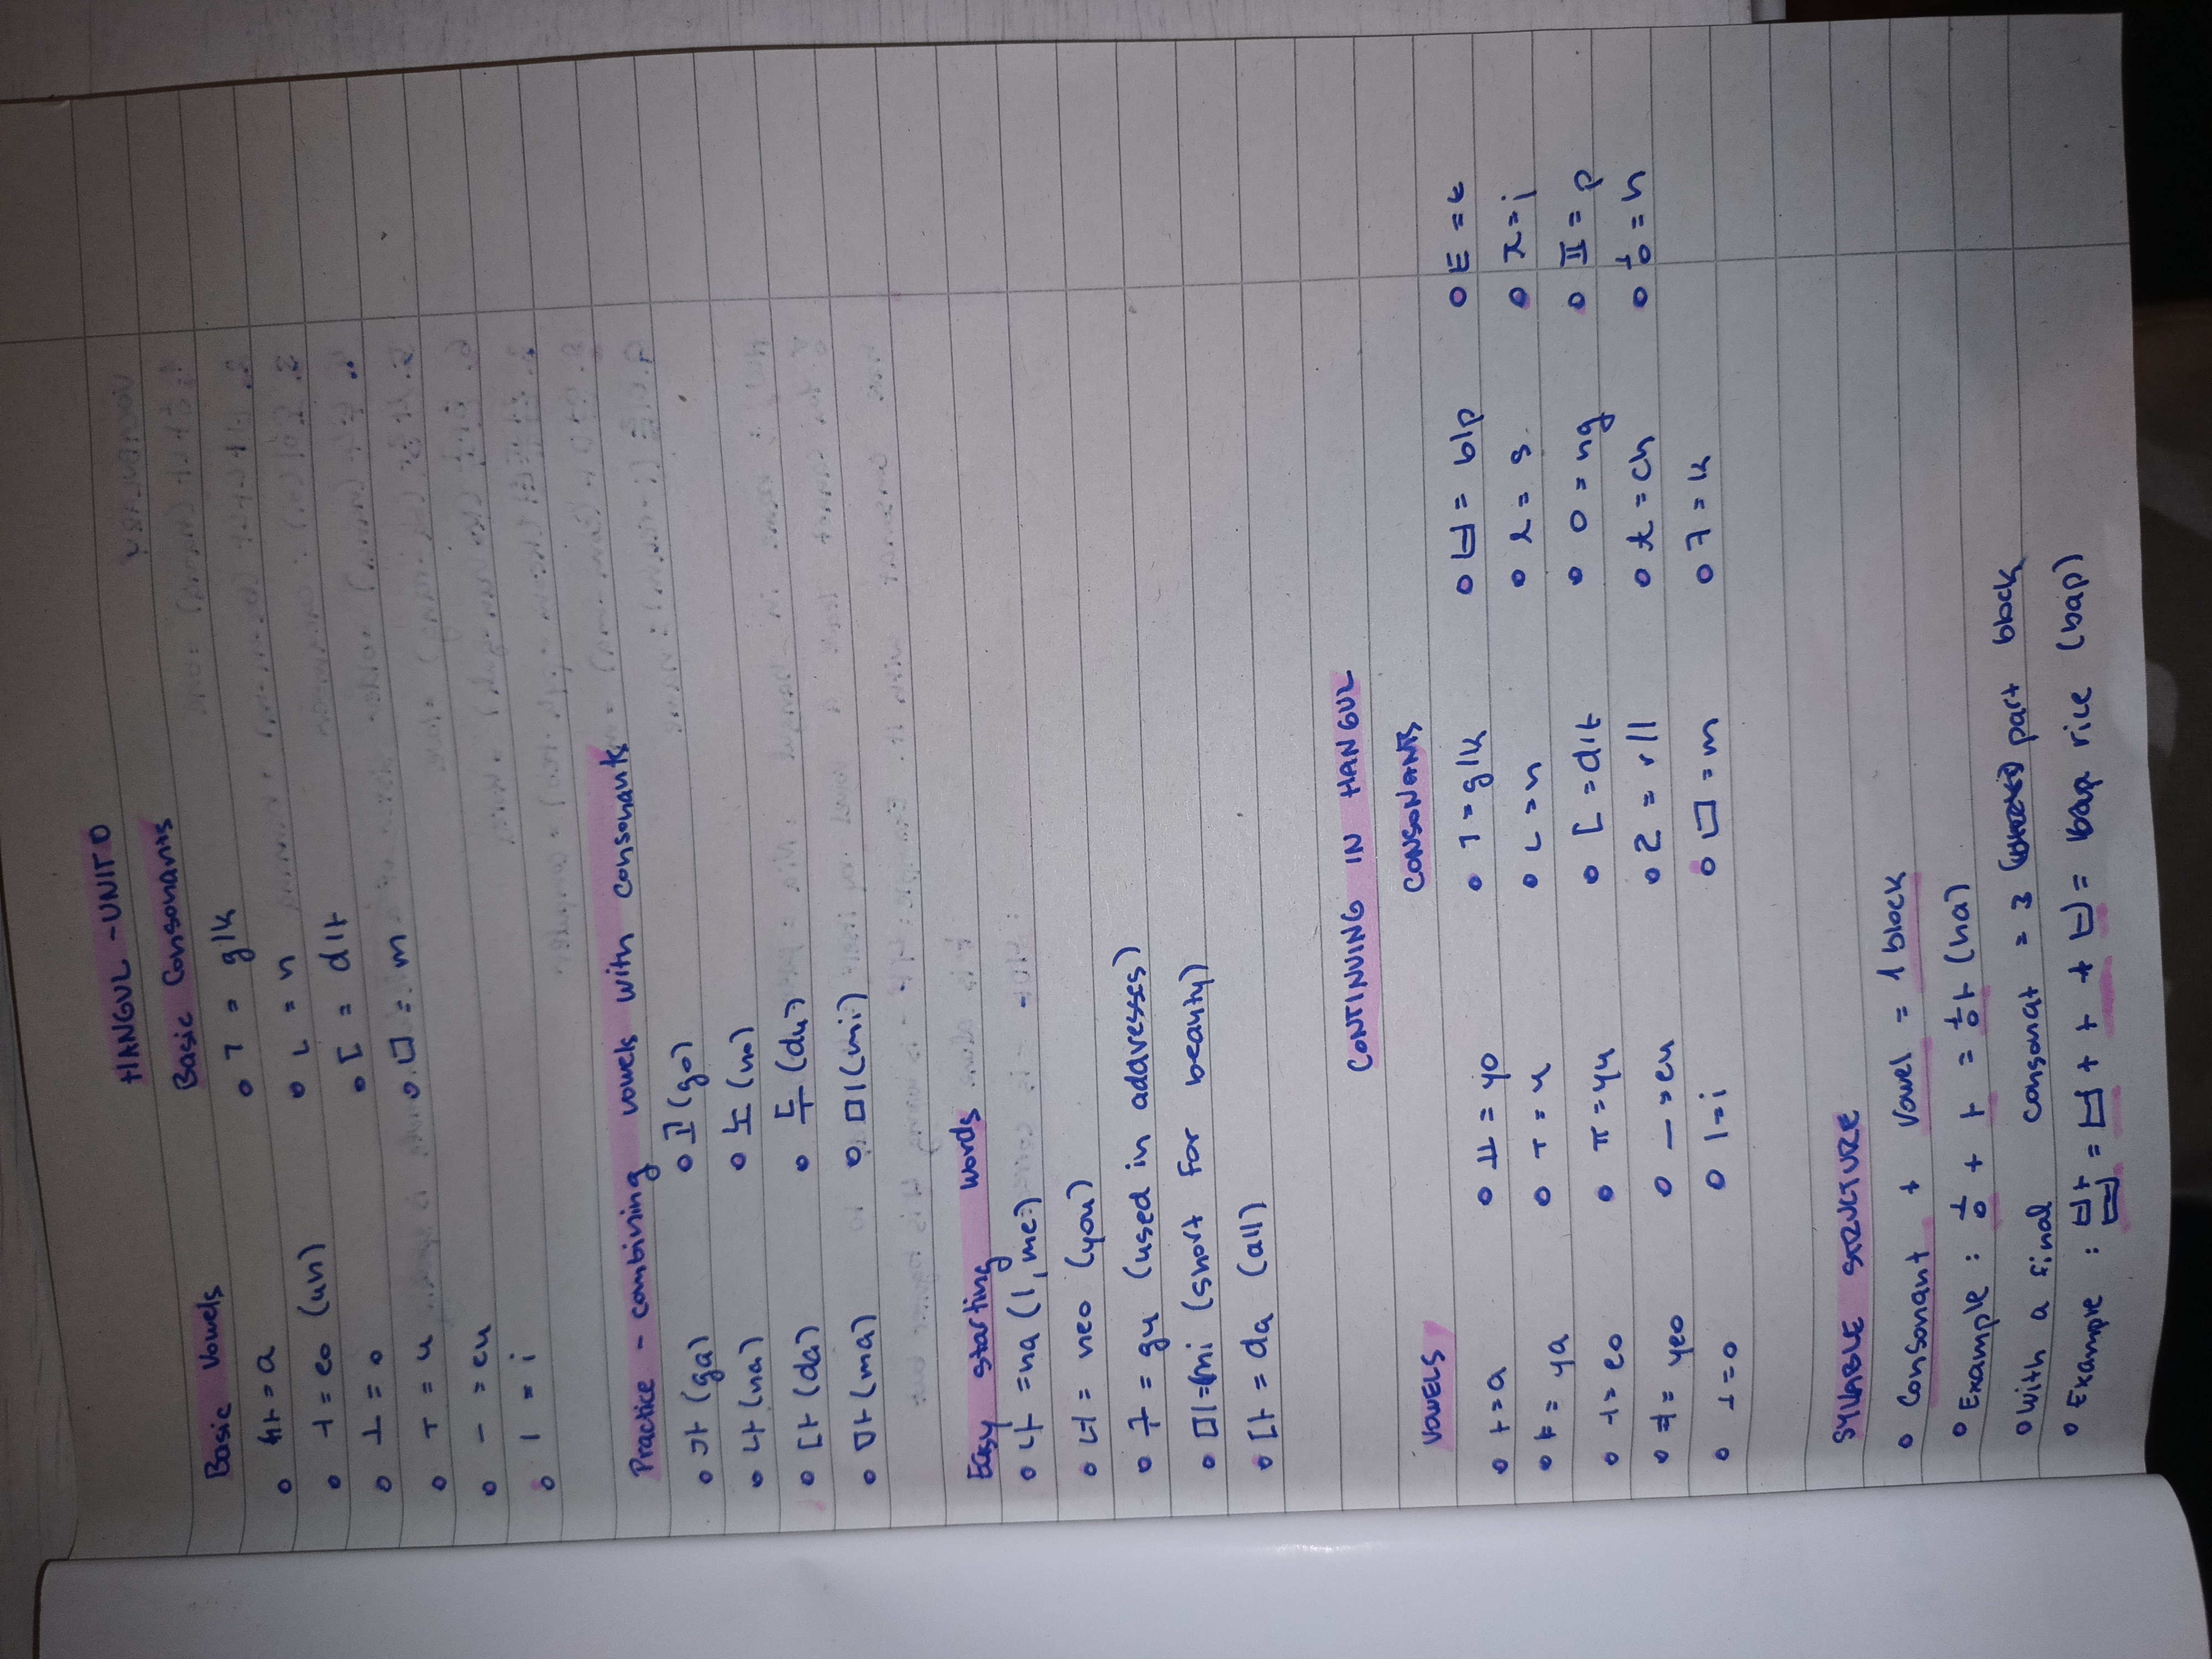 HANGUL - UNIT 0
Basic Vowels Basic Consonants
ㅏ = a ㄱ = g/k
ㅓ = eo (uh) ㄴ = n
ㅗ = o ㄷ = d/t
ㅜ = u ㅁ = m
ㅡ = eu
ㅣ = i
Practice - combining vowels with consonants
가 (ga) 고 (go)
나 (na) 노 (no)
다 (da) 두 (du)
마 (ma) 미 (mi)
Easy starting words
나 = na (I, me)
너 = neo (you)
구 = gu (used in addresses)
미 = mi (short for beauty)
다 = da (all)
CONTINUING IN HANGUL
VOWELS CONSONANTS
ㅏ = a ㅛ = yo ㄱ = g/k ㅂ = b/p ㅌ = t
ㅑ = ya ㅜ = u ㄴ = n ㅅ = s ㅈ = j
ㅓ = eo ㅠ = yu ㄷ = d/t ㅇ = ng ㅍ = p
ㅕ = yeo ㅡ = eu ㄹ = r/l ㅊ = ch ㅎ = h
ㅗ = o ㅣ = i ㅁ = m ㅋ = k
SYLLABLE STRUCTURE
Consonant + Vowel = 1 block
Example : ㅎ + ㅏ = 하 (ha)
With a final consonat = 3 part block
Example : 밥 = ㅂ + ㅏ + ㅂ = bap rice (bap)